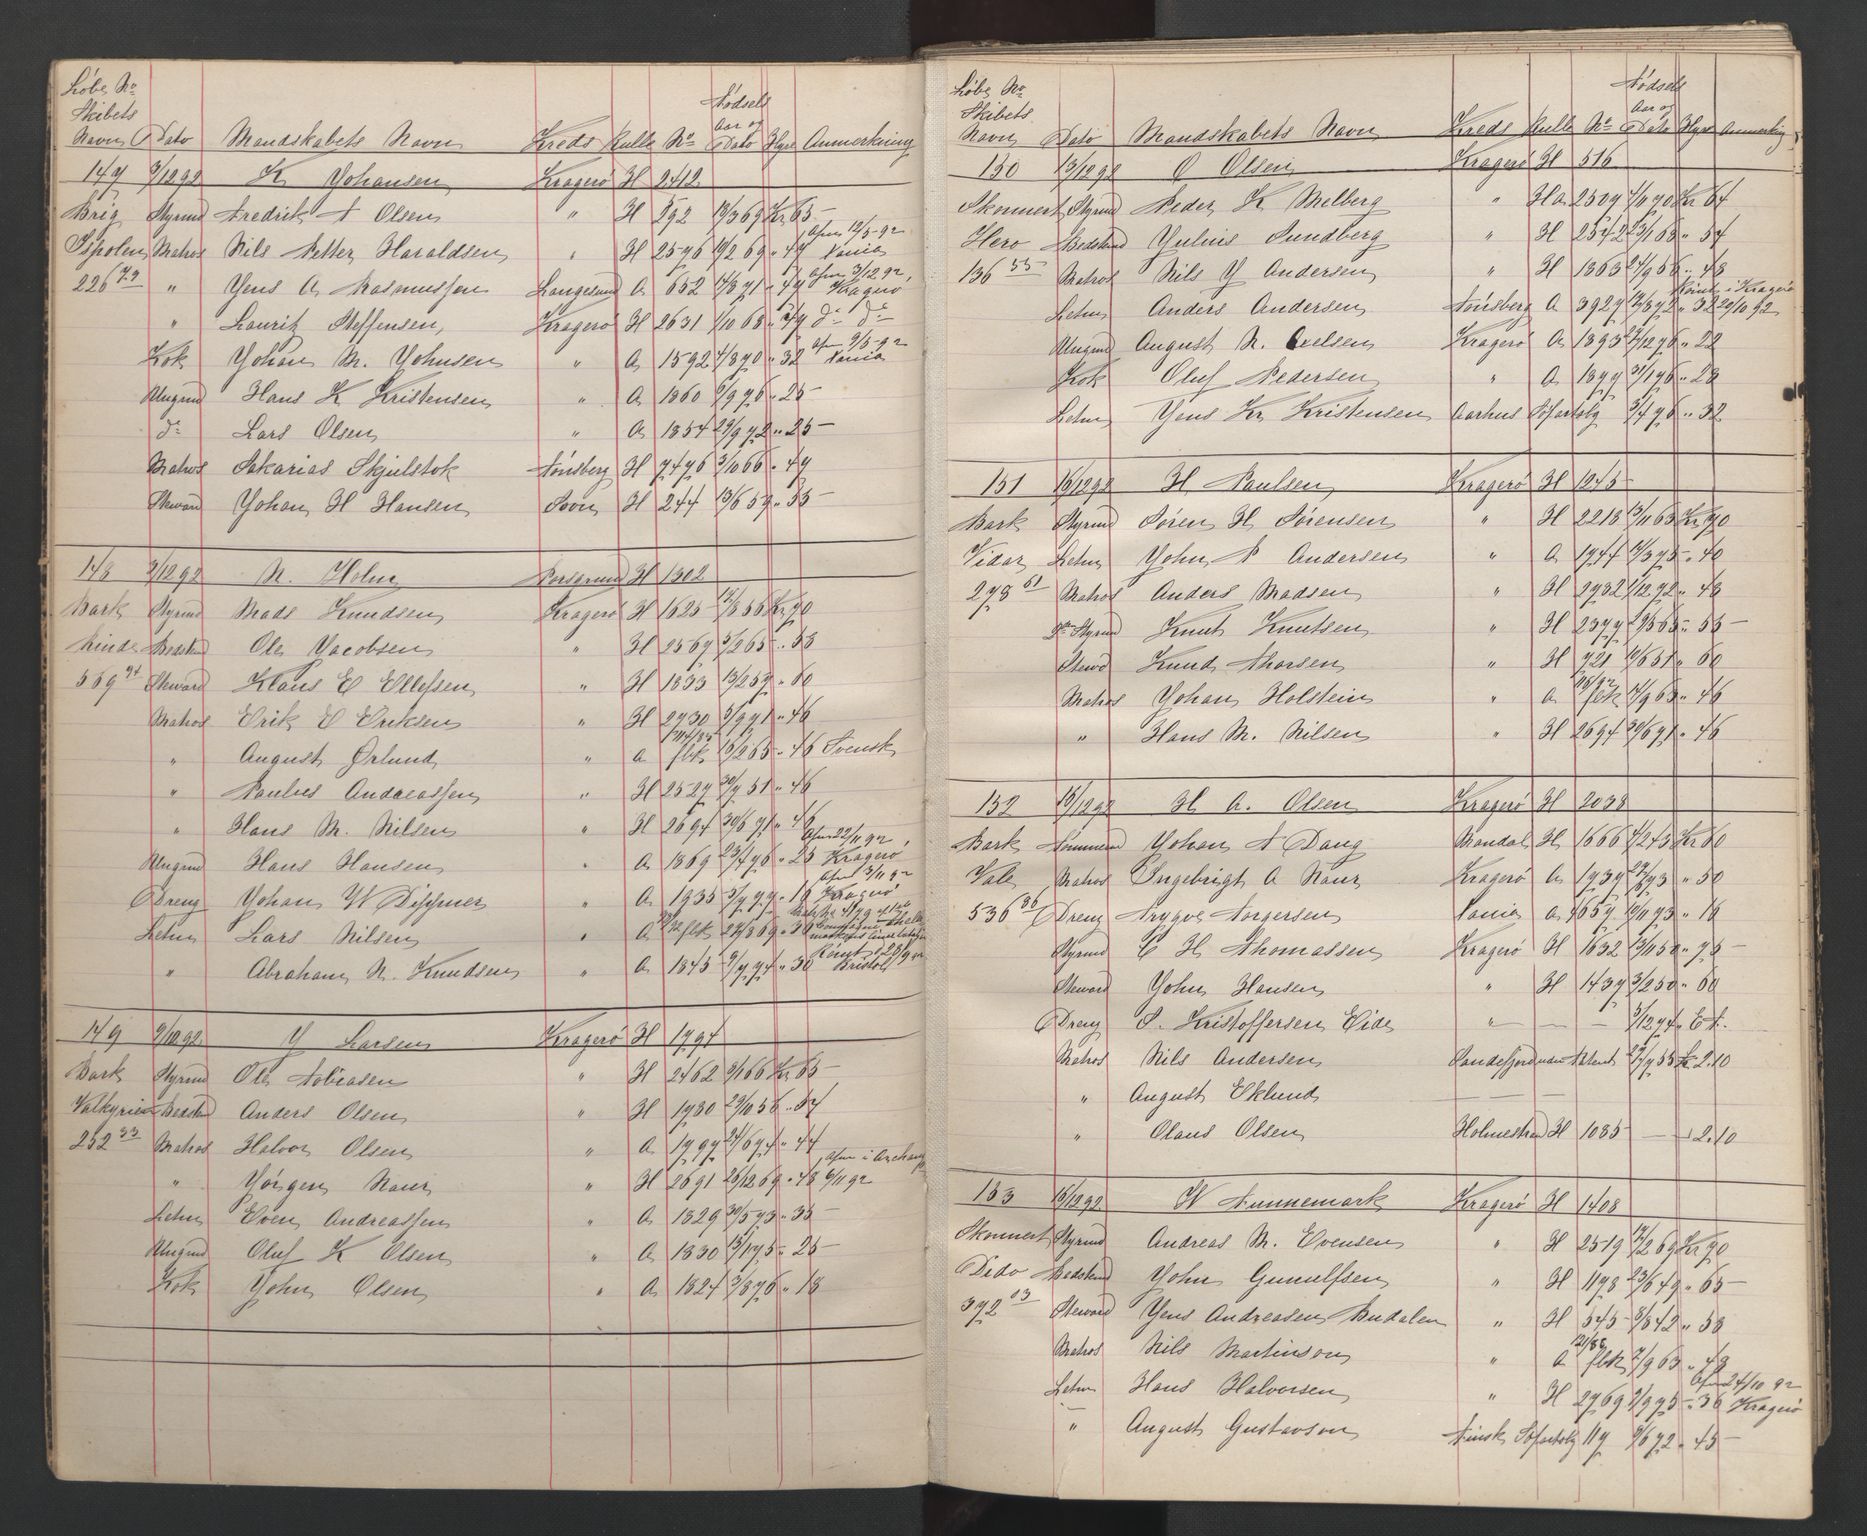 Løbe No
Skibets
Navn Dato Mandskabets Navn Kreds Rulle No Fødsels Aar og Dato Hyre Anmerkning
147 9/12 92 K Johansen Kragerø H 2412
Brig Styrmd Fredrik A Olsen " H 592 13/3 69 Kr 65-
Ispolen Matros Nils Petter Haraldsen " H 2596 19/2 69 " 49
226 73 " Jens A Rasmussen Langesund A 652 " 49 Kragerø
" Lauritz Steffensen Kragerø H 2631 1/10 68 " 49 do do
Kok Johan M. Johnsen " A 1592 4/8 70 " 32
Ungmd Hans K Kristensen " A 1860 6/9 76 " 25-
do Lars Olsen " A 1854 29/9 72 " 25-
Matros Sakarias Skjulstok Tønsberg H 7476 3/10 66 " 49
Steward Johan H Hansen Sovn H 244 13/6 59 " 55-
148 9/12 92 N. Holm Porsgrund H 1302
Bark Styrmd Mads Knudsen Kragerø H 1625 12/8 56 Kr 70
Linde Bedstmd Ole Jacobsen " H 2569 5/2 65- " 58
569 94 Steward Klaus E Ellefsen " H 1833 13/2 59 " 60
Matros Erik E Eriksen " H 2730 5/9 71 " 46
" August Ørlund " A flk 15/2 65- " 46 Svensk
" Paulus Andreassen " H 2527 30/7 51 " 46
" Hans M. Nilsen " H 2694 30/6 71 " 46
Ungmd Hans Hansen " A 1869 23/4 76 " 25 Kragerø
Dreng Johan W Dippner " A 1935 5/7 77 " 16 Kragerø
Letm Lars Nilsen " A flk 22/8 69 " 30
" Abraham N. Knudsen " A 1845 9/7 74 " 30 Bristol
149 9/12 92 J Larsen Kragerø H 1794
Bark Styrmd Ole Tobiasen " H 2462 9/1 66 Kr 65-
Valkyrien Bedstmd Anders Olsen " H 1930 29/10 56 " 57
252 33 Matros Halvor Olsen " A 1797 24/6 74 " 44
" Jørgen Naur " H 2691 25/12 69 " 48 6/11 92
Letm Even Andreassen " A 1829 30/5 73 " 35-
Ungmd Oluf K Olsen " A 1830 15/1 75- " 25-
Kok John Olsen " A 1824 3/8 76 " 18
Løbe No
Skibets
Navn Dato Mandskabets Navn Kreds Rulle No Fødsels Aar og Dato Hyre Anmerkning
150 13/12 92 O Olsen Kragerø H 516
Skonnert Styrmd Peder K Melberg " H a 2509 4/11 70 Kr 64
Hero Bedstmd Julius Sundberg " H 2542 " 54
136 55 Matros Nils J Andersen " H 1363 24/9 56 " 48
Letm Anders Andersen Tønsberg A 3927 12/8 72 " 32 20/10 92
Ungmd August N. Axelsen Kragerø A 1895 27/12 76 " 22
Kok Oluf Pedersen " A 1877 31/1 76 " 28
Letm Jens Kr Kristensen Aarhus Søfartsbg 3/4 76 " 32
151 15/12 92 H Paulsen Kragerø H 1245-
Bark Styrmd Søren H Sørensen " H 2218 13/11 63 Kr 70
Vidar Letm John P Andersen " A 1744 11/3 75- " 40
278 61 Matros Anders Madsen " H 2732 1/12 72 " 48
2n Styrmd Knut Knutsen " H 2377 " 55-
Stewd Knud Thorsen " H 721 10/6 51 " 60
Matros Johan Holstein " A flk 14/9 68 " 46
" Hans M. Nilsen " H 2694 30/6 71 " 46
152 15/12 92 H A. Olsen Kragerø H 2038
Bark Tømmermd Johan A Dang Mandal H 1666 4/2 45 Kr 60
Vale Matros Ingebrigt A Naur Kragerø A 1939 " 50
536 36 Dreng Trygve Torgersen A 1659 19/11 73 " 16
Styrmd C H Thomassen Kragerø H 1632 13/11 50 " 75-
Steward John Hansen " H 1439 3/2 50 " 60
Dreng S. Kristoffersen Eide " — — 5/12 74 "
Matros Nils Andersen Sandefjord uden Attest 27/7 55 2.10
" August Eklund
" Olaus Olsen Holmestrand H 1085- — 2.10
153 15/12 92 W Tunnemark Kragerø H 1408
Skonnert Styrmd Andreas M. Evensen " H 2519 17/2 69 Kr 70
Dido Bedstmd John Gunulfsen " H 1178 23/6 49 " 65-
392 03 Steward Jens Andreasen Budalen " H 545- 8/8 42 " 58
Matros Nils Martinson " A flk 7/9 63 " 48
Letm Hans Halvorsen " H 2769 9/9 75- " 36 Kragerø
" August Gustavson Finsk Søfartsbg 117 9/6 72 " 45-